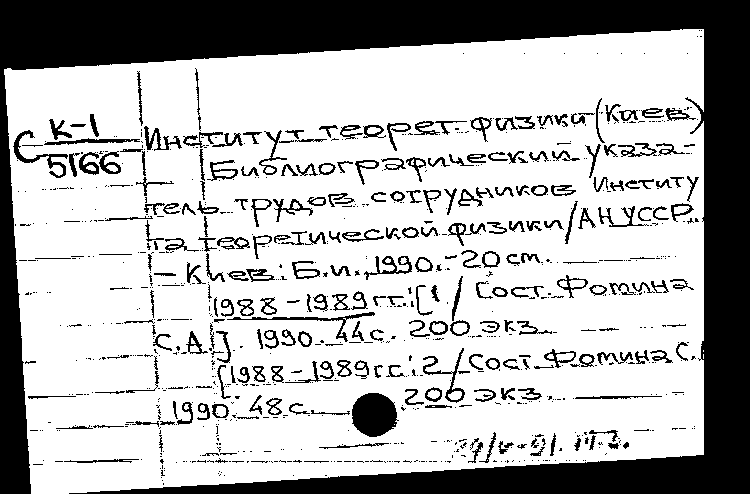 С К-1
5166
Институт теорет. физики (Киев)
Библиографический указа-
тель трудов сотрудников Институ
та теоретической физики/АН УССР.
- Киев: Б.и., 1990. - 20 см.
1988-1989 гг.: [1 / Сост. Фотина
С.А.]. 1990. 44 с. 200 экз.
[1988-1989 гг.: 2 / Сост. Фотина С.А
1990. 48 с. 200 экз.